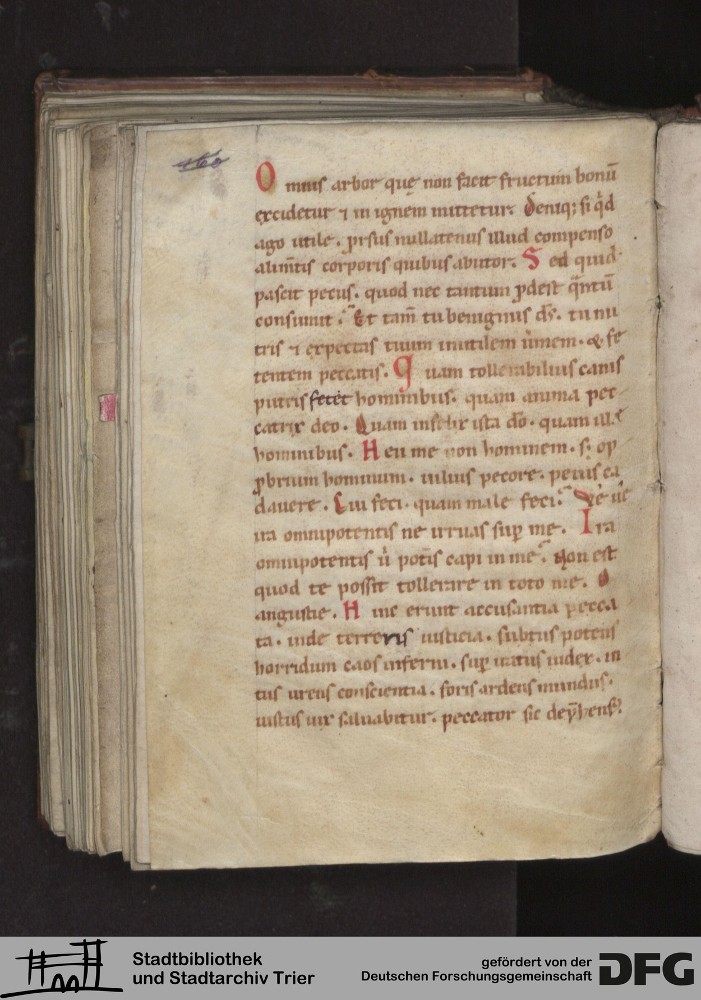 460
Omnis arbor quę non facit fructum bonū
excidetur ⁊ in ignem mittetur. Deniq; si qͥd
ago utile. ꝓrsus nullatenus illud compenso
alim̄tis corporis quibus abutor. Sed quid
pascit pecus. quod nec tantum ꝓdest qͣntū
consumit. Et tam̄ tu benignus dꝰ. tu nu
tris ⁊ expectas tuum inutilem ūmem. & fe
tentem peccatis. Quam tollerabilius canis
putris fetet hominibus. quam anima pec
catrix deo. Quam infelix ista do. quam illꝰ
hominibus. Heu me non hominem. sꝫ op
ꝓbrium hominum. uilius pecore. peius ca
dauere.
feci. quam male feci. Ve ue
ira omnipotentis ne irruas suꝑ me. Ira
omnipotentis ū potis capi in me. Non est
quod te possit tollerare in toto me. O
angustie. Hinc erunt accusantia pecca
ta. inde terreris iusticia. subtus patens
horridum caos inferni. suꝑ iratus iudex. in
tus urens conscientia. foris ardens mundus.
iustus uix saluabitur. peccator sic
Stadtbibliothek
und Stadtarchiv Trier
gefördert von der
Deutschen Forschungsgemeinschaft
DFG